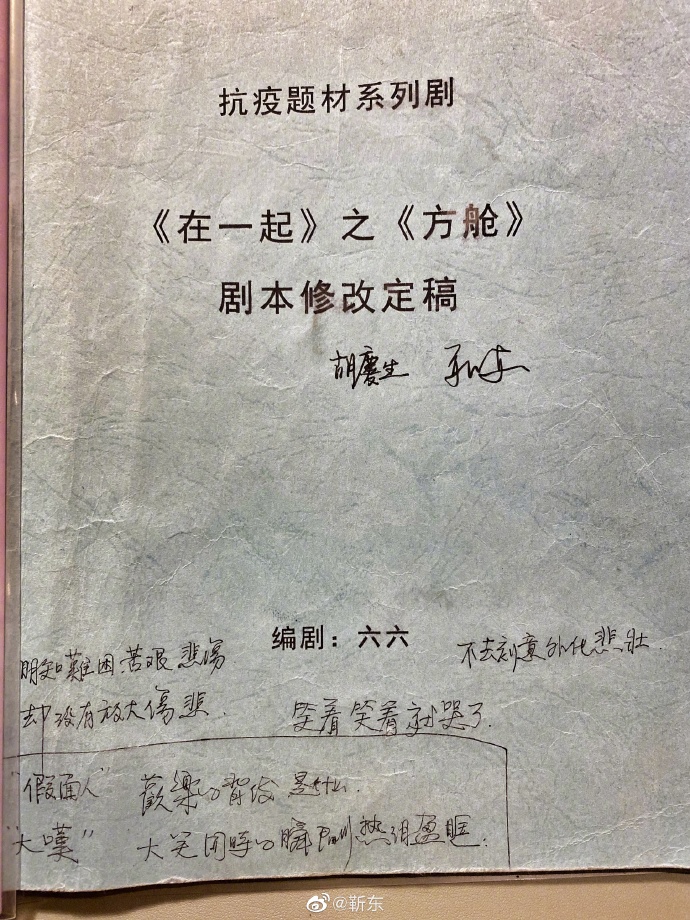 抗疫题材系列剧
《在一起》之《方舱》
剧本修改定稿
胡慶生 靳东
编剧：六六
不去刻意外化悲壮.
明知難困苦艰悲傷
却没有放大傷悲.
笑着笑着就哭了.
"假面人" 歡樂的背後是什么.
"大嘆" 大笑同時的瞬間热泪盈眶.
@靳东